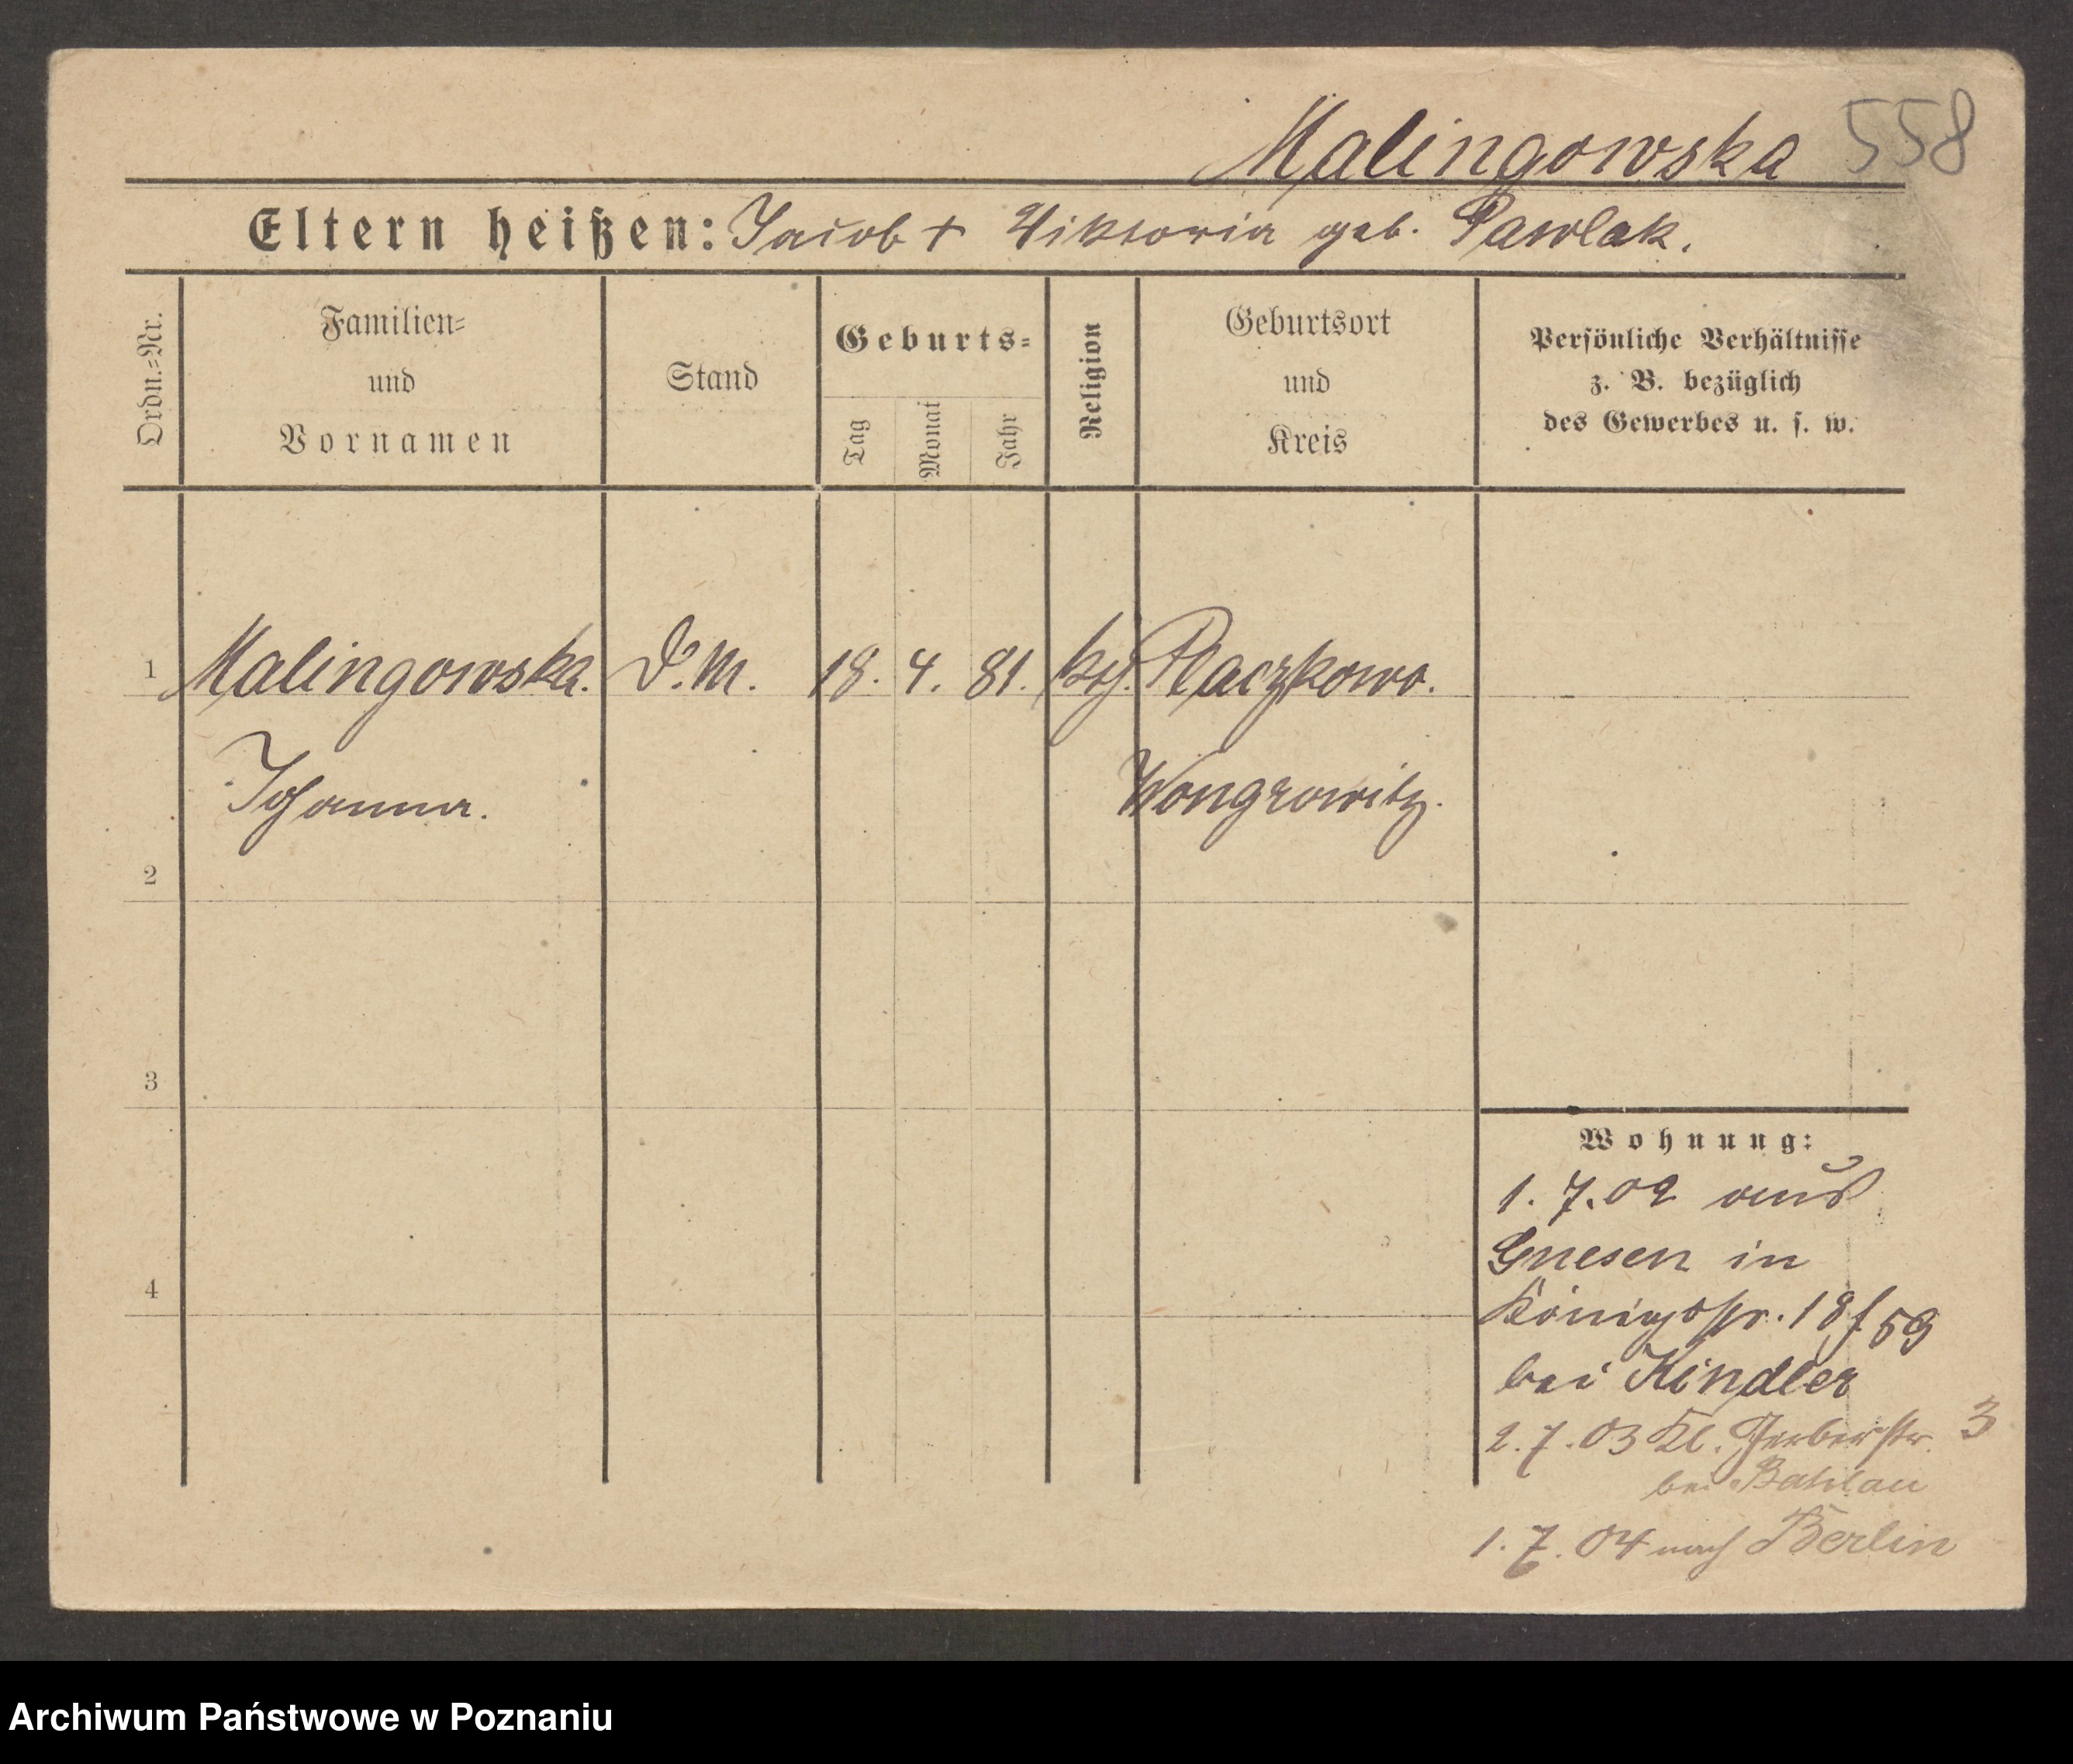 Malingowska 558
Eltern heißen: Jacob + Viktoria geb. Pawlak.
Ordn.=Nr.
Familien=
und
Vornamen
Stand
Geburts=
Tag
Monat
Jahr
Religion
Geburtsort
und
Kreis
Persönliche Verhältnisse
z. B. bezüglich
des Gewerbes u. s. w.
1 Malingowska. D.M. 18. 4. 81. kth. Raczkowo.
Johanna. Wongrowitz.
2
3
4
Wohnung:
1. 7. 02 aus
Gnesen in
Königstr. 18 f 59
bei Kindler
2. 7. 03 Kl. Gerberstr. 3
bei Bahlau
1. 7. 04 nach Berlin
Archiwum Państwowe w Poznaniu